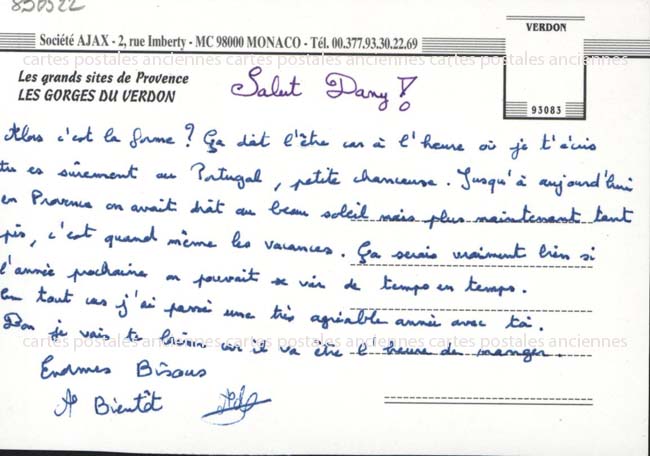 850522
VERDON
Société AJAX - 2, rue Imberty - MC 98000 MONACO - Tél. 00.377.93.30.22.69
cartes postales anciennes cartes postales anciennes cartes postales anciennes
Les grands sites de Provence
LES GORGES DU VERDON
93083
Salut Dany !
Alors c'est la forme ? Ça doit l'être car à l'heure où je t'écris
tu es sûrement au Portugal, petite chanceuse. Jusqu'à aujourd'hui
en Provence on avait droit au beau soleil mais plus maintenant tant
pis, c'est quand même les vacances. Ça serais vraiment bien si
l'année prochaine on pouvait se voir de temps en temps.
En tout cas j'ai passé une très agréable année avec toi.
Bon je vais te laisser car il va être l'heure de manger.
cartes postales anciennes cartes postales anciennes cartes postales anciennes
Enormes Bisous
A Bientôt